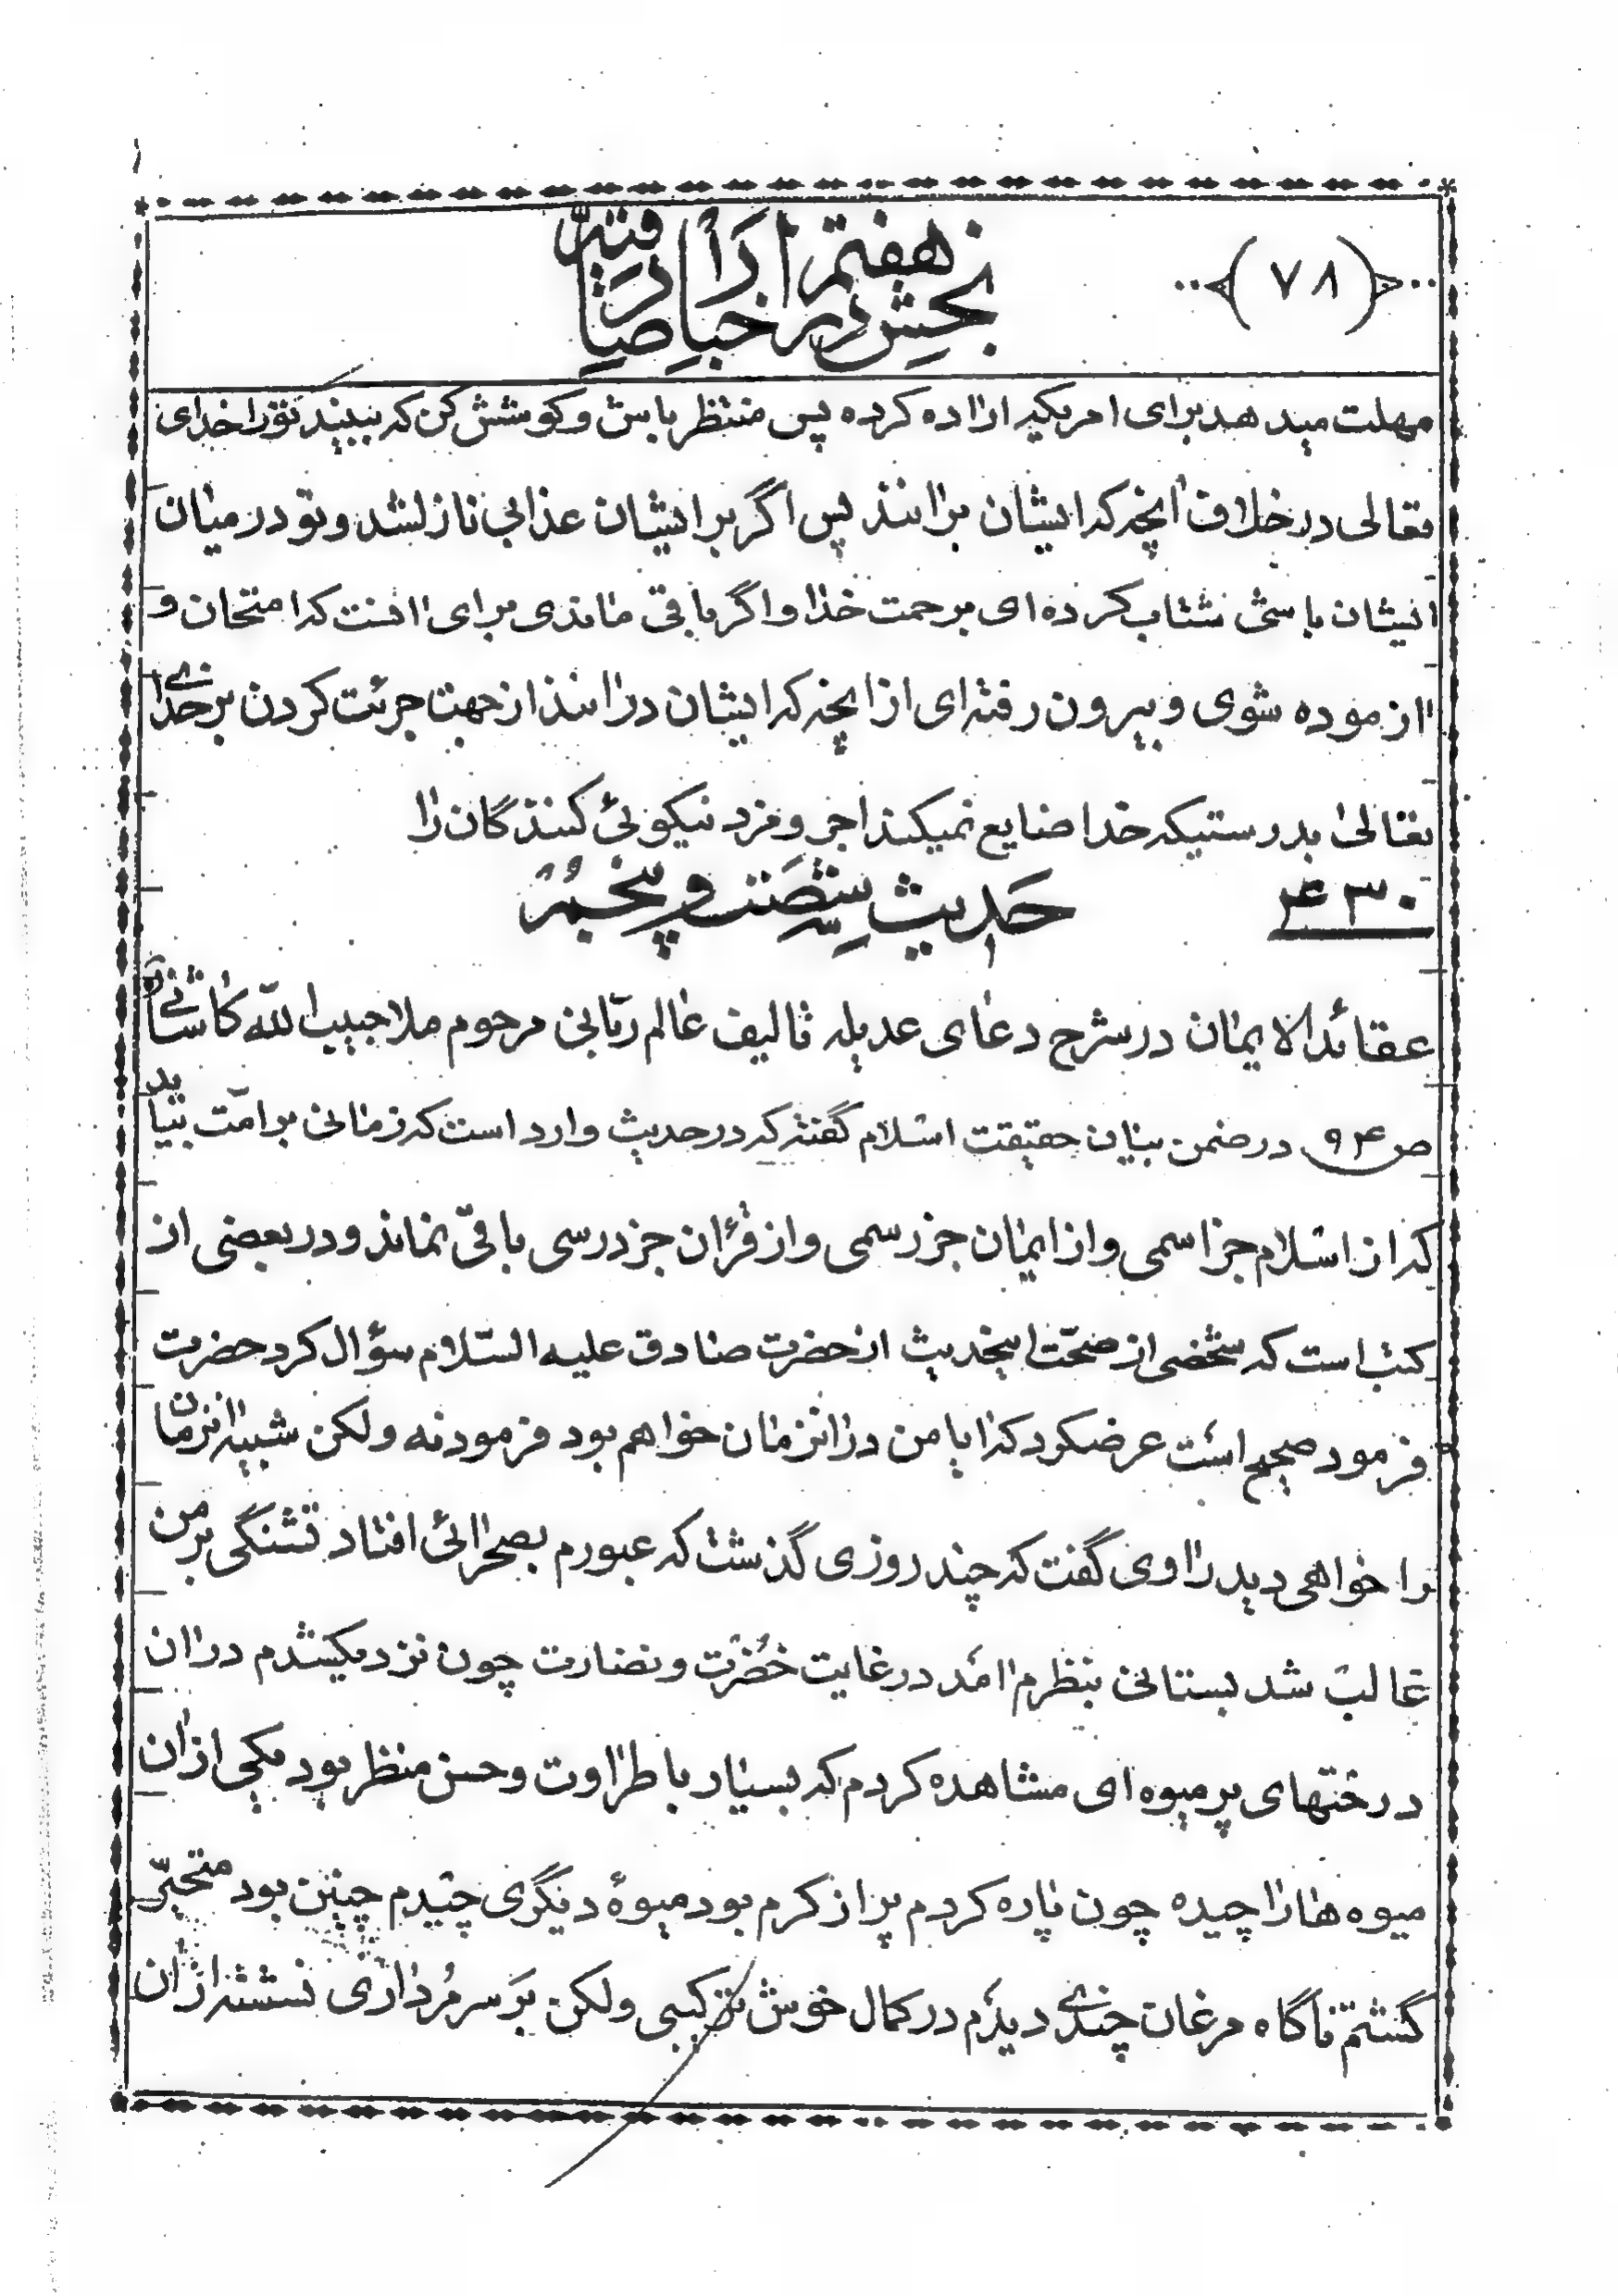 (۷۸)
بخش هفتم در اخبار صادقیه
مهلت میدهد برای امریکه اراده کرده پس منتظر باش و کوشش کن که ببیند تو را خدای
تعالی در خلاف آنچه که ایشان برانند پس اگر بر ایشان عذابی نازل شد و تو در میان
ایشان باشی شتاب کرده‌ای برحمت خدا و اگر باقی ماندی برای آنست که امتحان و
آزموده شوی و بیرون رفته‌ای از آنچه که ایشان درانند از جهت جرئت کردن بر خدای
تعالی بدرستیکه خدا ضایع نمیکند اجر و مزد نیکوئی کنندگان را
۴۳۰ حدیث شصت و پنجم
عقائد الایمان در شرح دعای عدیله تالیف عالم ربّانی مرحوم ملا حبیب اللّه کاشانی ره
ص ۹۴ در ضمن بیان حقیقت اسلام گفته که در حدیث وارد است که زمانی بر امّت بیاید
که از اسلام جز اسمی و از ایمان جز رسمی و از قرآن جز درسی باقی نماند و در بعضی از
کتب است که شخصی از صحّت اینحدیث از حضرت صادق علیه السّلام سؤال کرد حضرت
فرمود صحیح است عرضکرد که آیا من در آنزمان خواهم بود فرمود نه ولکن شبیه آنزمان
را خواهی دید راوی گفت که چند روزی گذشت که عبورم بصحرائی افتاد تشنگی بر من
غالب شد بستانی بنظرم آمد در غایت خضرت و نضارت چون نزدیک شدم در آن
درختهای پر میوه‌ای مشاهده کردم که بسیار با طراوت و حسن منظر بود یکی از آن
میوه‌ها را چیده چون پاره کردم پر از کرم بود میوۀ دیگری چیدم چنین بود متحیّر
گشتم ناگاه مرغان چندی دیدم در کمال خوش ترکیبی ولکن بر سر مُرداری نشسته از آن